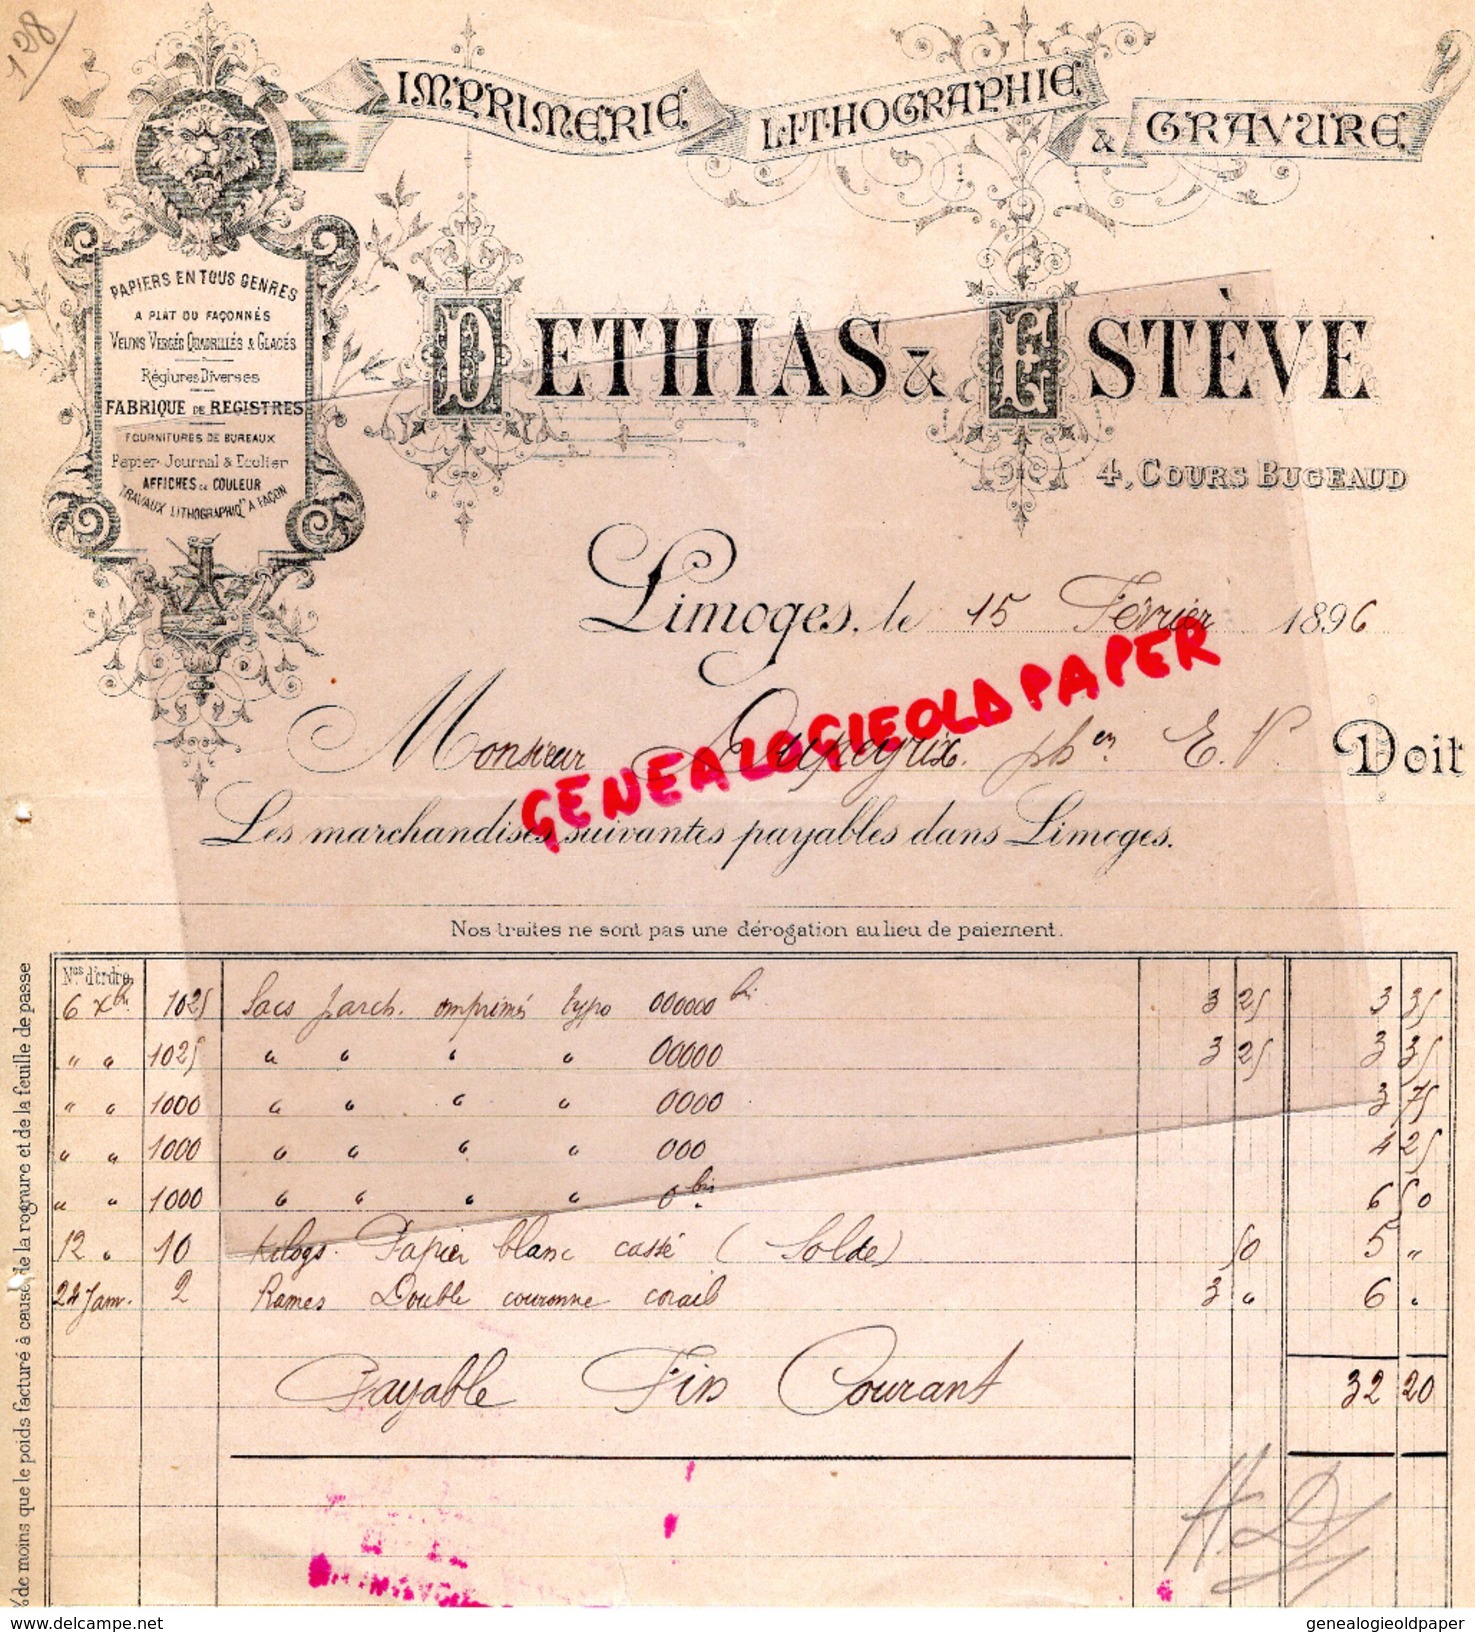 128
IMPRIMERIE LITHOGRAPHIE & GRAVURE
PAPIERS EN TOUS GENRES
A PLAT OU FAÇONNÉS
VELINS VERGÉS QUADRILLÉS & GLACÉS
Réglures Diverses
FABRIQUE DE REGISTRES
FOURNITURES DE BUREAUX
Papier Journal & Ecolier
AFFICHES DE COULEUR
TRAVAUX LITHOGRAPHIQ. A FAÇON
DETHIAS & ESTÈVE
4, COURS BUGEAUD
Limoges, le 15 Février 1896
GENEALOGIEOLDPAPER
Monsieur Dupeyrix. phen E. V. Doit
Les marchandises suivantes payables dans Limoges.
Nos traites ne sont pas une dérogation au lieu de paiement.
Nos d'ordre
6 Xbre 1025 Sacs parch. imprimés typo 000000 bis 3 25 3 35
" " 1025 " " " " 00000 3 25 3 35
" " 1000 " " " " 0000 3 75
" " 1000 " " " " 000 4 25
" " 1000 " " " " 0 bis 6 50
12 " 10 Kilogs. Papier blanc cassé (Solde) 50 5 "
24 Janv. 2 Rames Double couronne corail 3 " 6 "
Payable Fin Courant 32 20
% de moins que le poids facturé à cause de la rognure et de la feuille de passe
www.delcampe.net
genealogieoldpaper